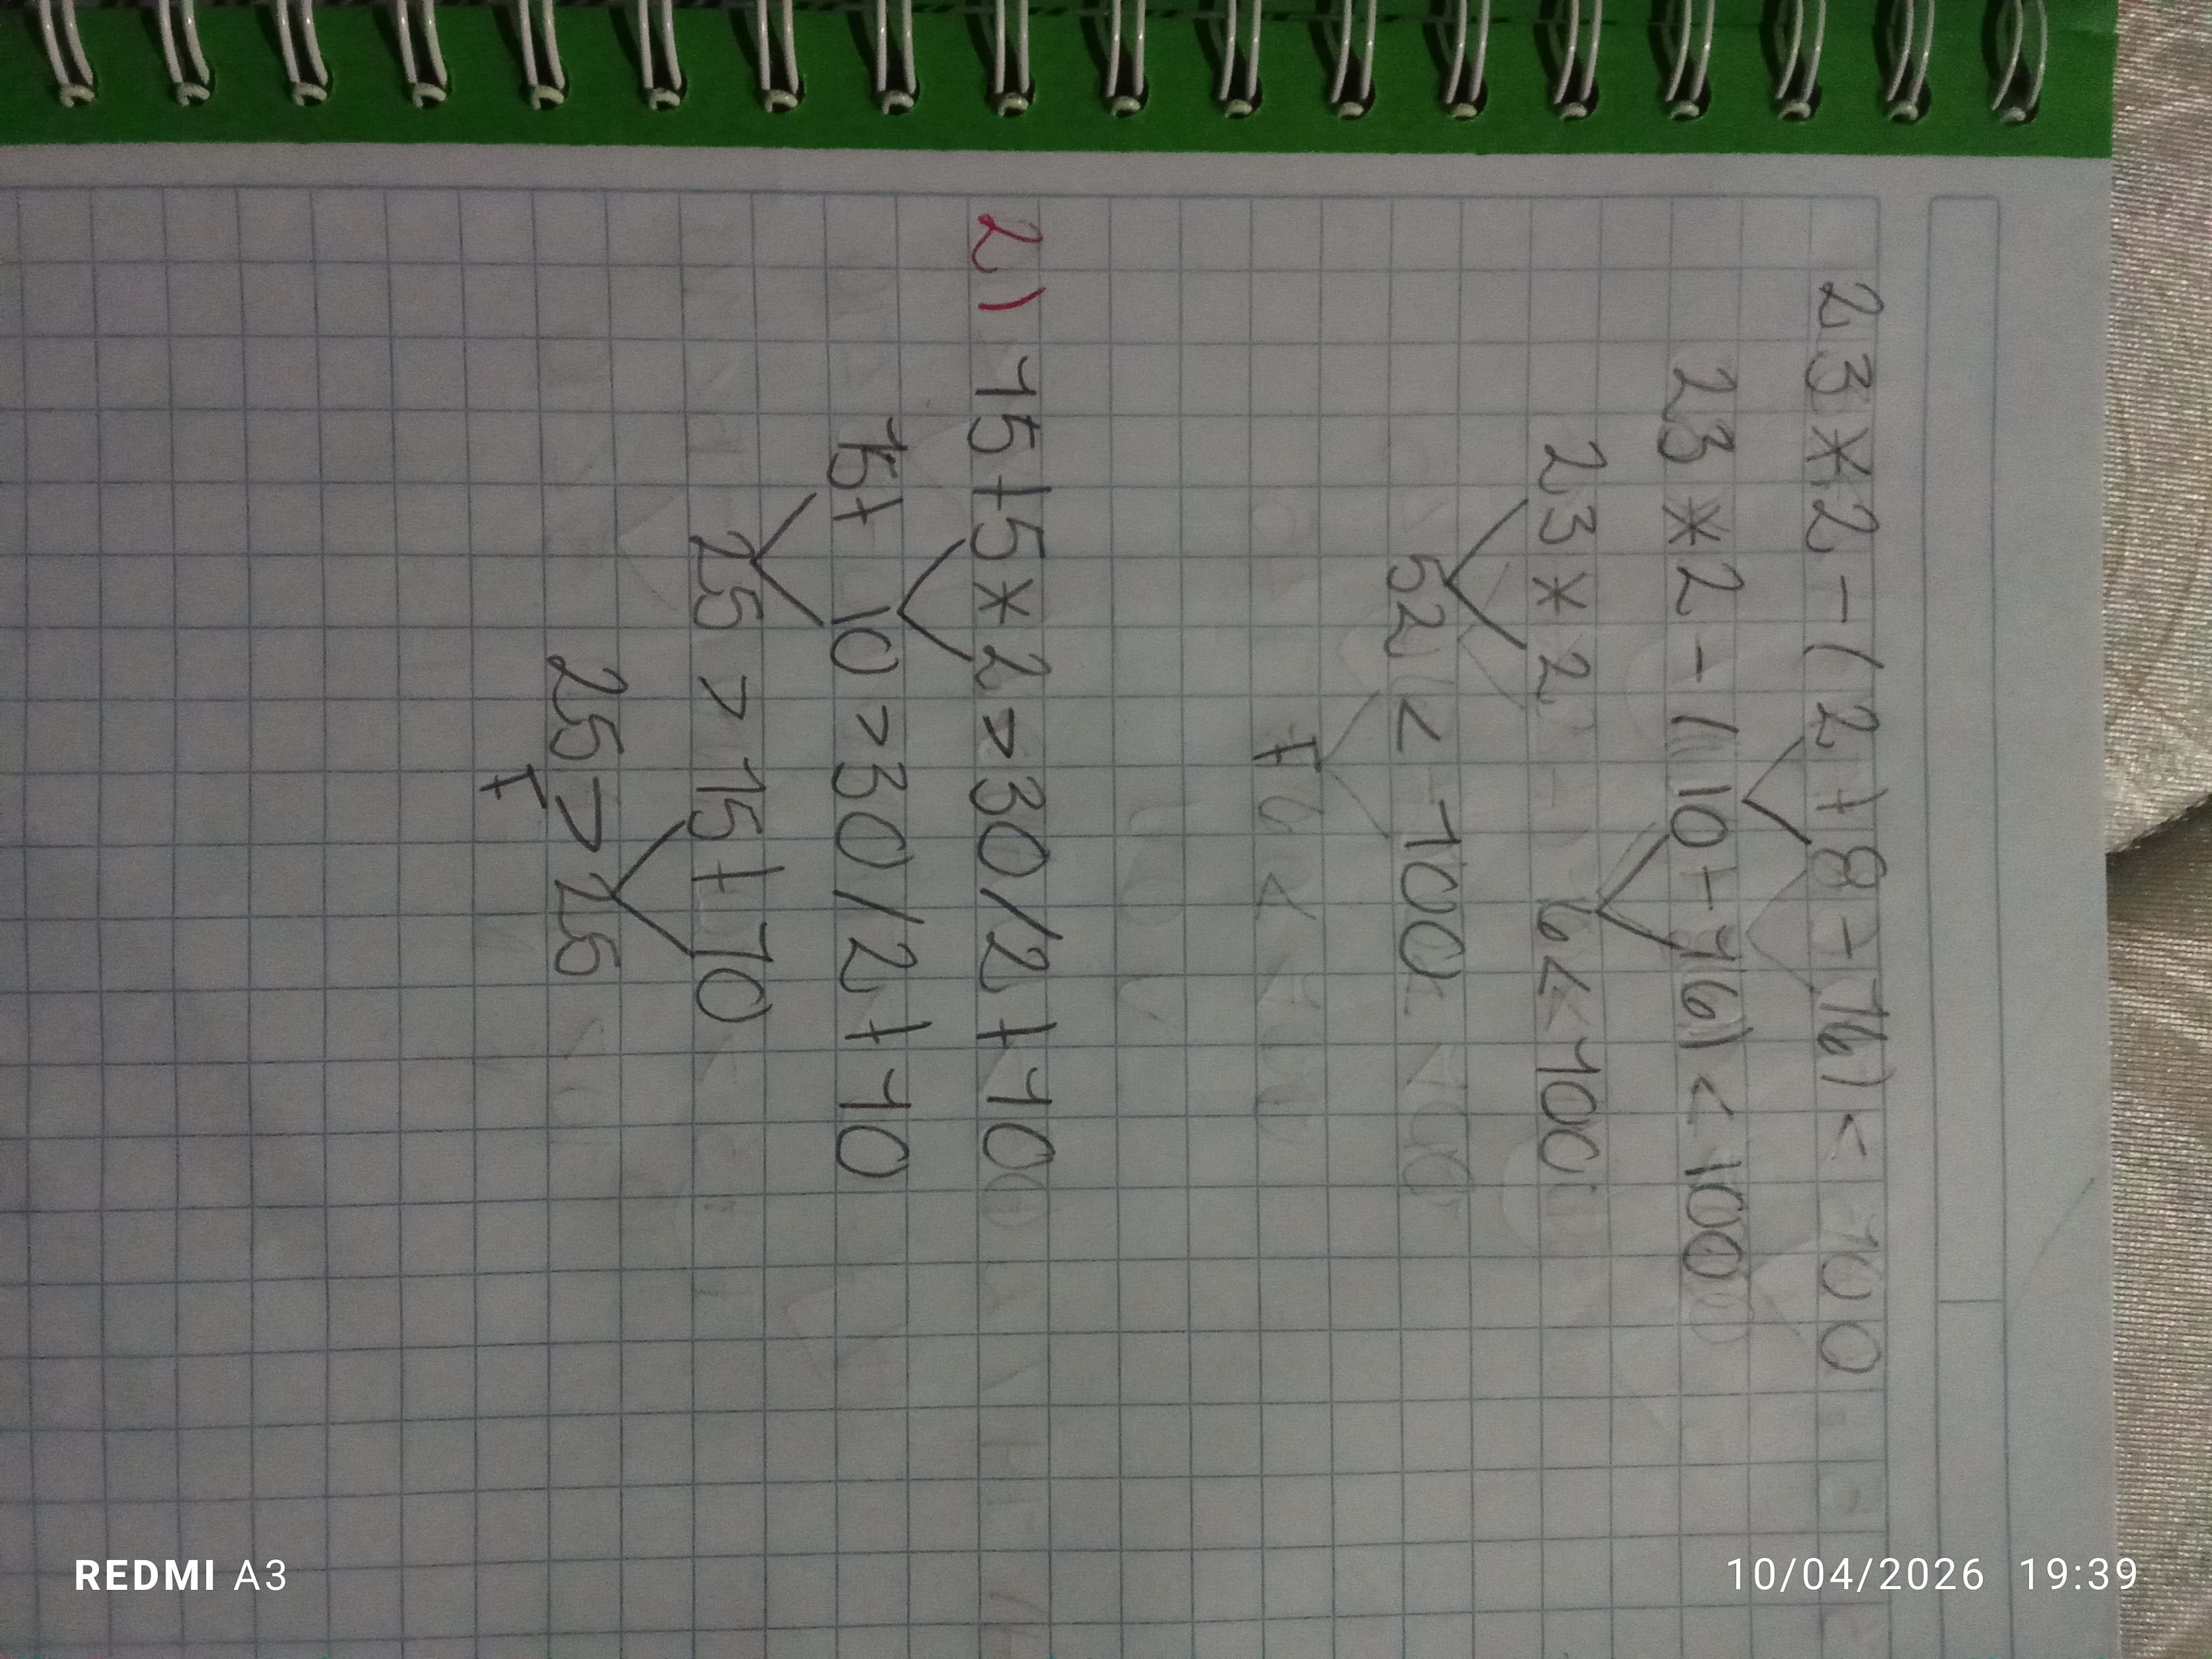 23*2-(2+8-16)<100
23*2-(10-16)<100
23*2 6<100
52<100
F
2) 15+5*2>30/2+10
15+ 10>30/2+10
25>15+10
25>25
F
REDMI A3
10/04/2026 19:39